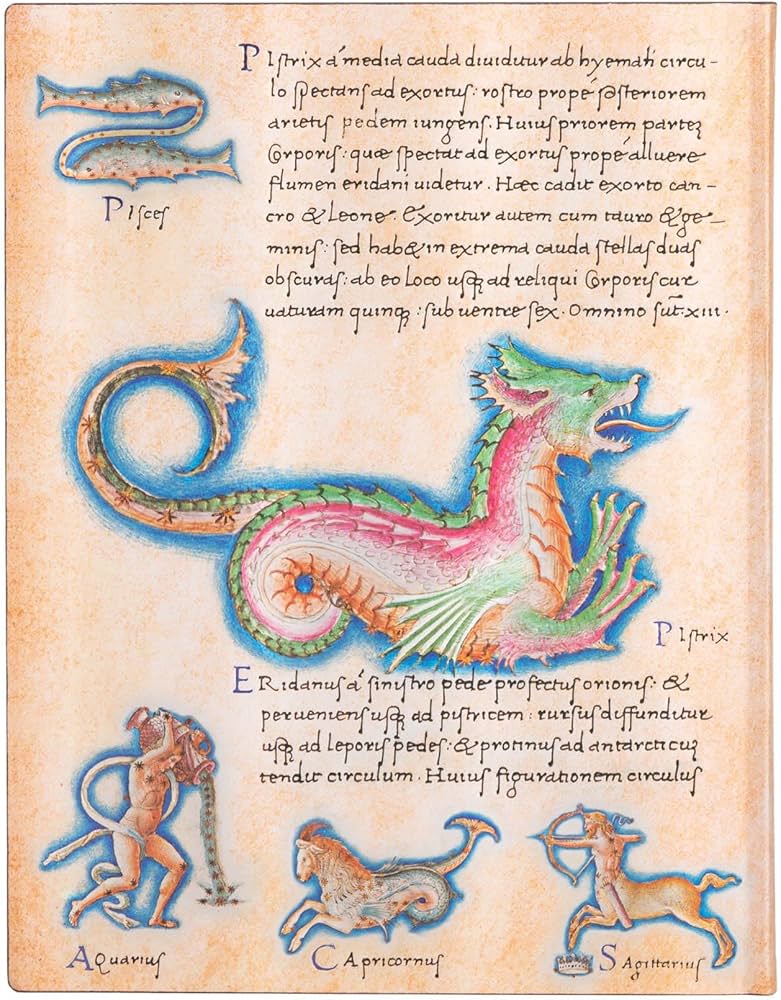 PIſtrix a' media cauda diuiditur ab hyemali circu-
lo ſpectanſ ad exortuſ: roſtro prope' poſteriorem
arietiſ pedem iungenſ. Huiuſ priorem partez
Corporiſ: quæ ſpectat ad exortuſ prope' alluere
flumen eridani uidetur. Hæc cadit exorto can-
cro & Leone. Exoritur autem cum tauro & ge-
miniſ: ſed hab& in extrema cauda ſtellaſ duaſ
obſcuraſ: ab eo Loco uſqꝫ ad reliqui Corporiſ cur
uaturam quinqꝫ: ſub uentre ſex. Omnino ſūt. xiii.
PIſceſ
PIſtrix
ERidanuſ a' ſiniſtro pede profectuſ orioniſ: &
perueniens uſqꝫ ad piſtricem: rurſuſ diffunditur
uſqꝫ ad leporiſ pedeſ: & protinuſ ad antarcticuz
tendit circulum. Huiuſ figurationem circuluſ
AQuariuſ
CApricornuſ
SAgittariuſ